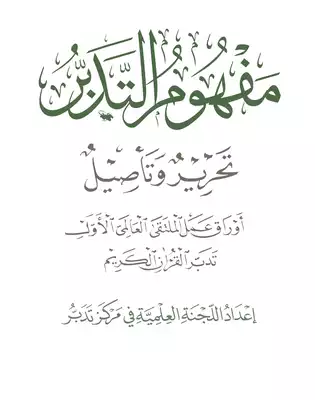 مَفْهُومُ التَّدَبُّرِ
تَحْرِيرٌ وَتَأْصِيلٌ
أَوْرَاقُ عَمَلِ المُلْتَقَى العَالَمِيِّ الأَوَّلِ
تَدَبُّر القُرْآنِ الكَرِيمِ
إِعْدَادُ اللَّجْنَةِ العِلْمِيَّةِ فِي مَرْكَزِ تَدَبُّر